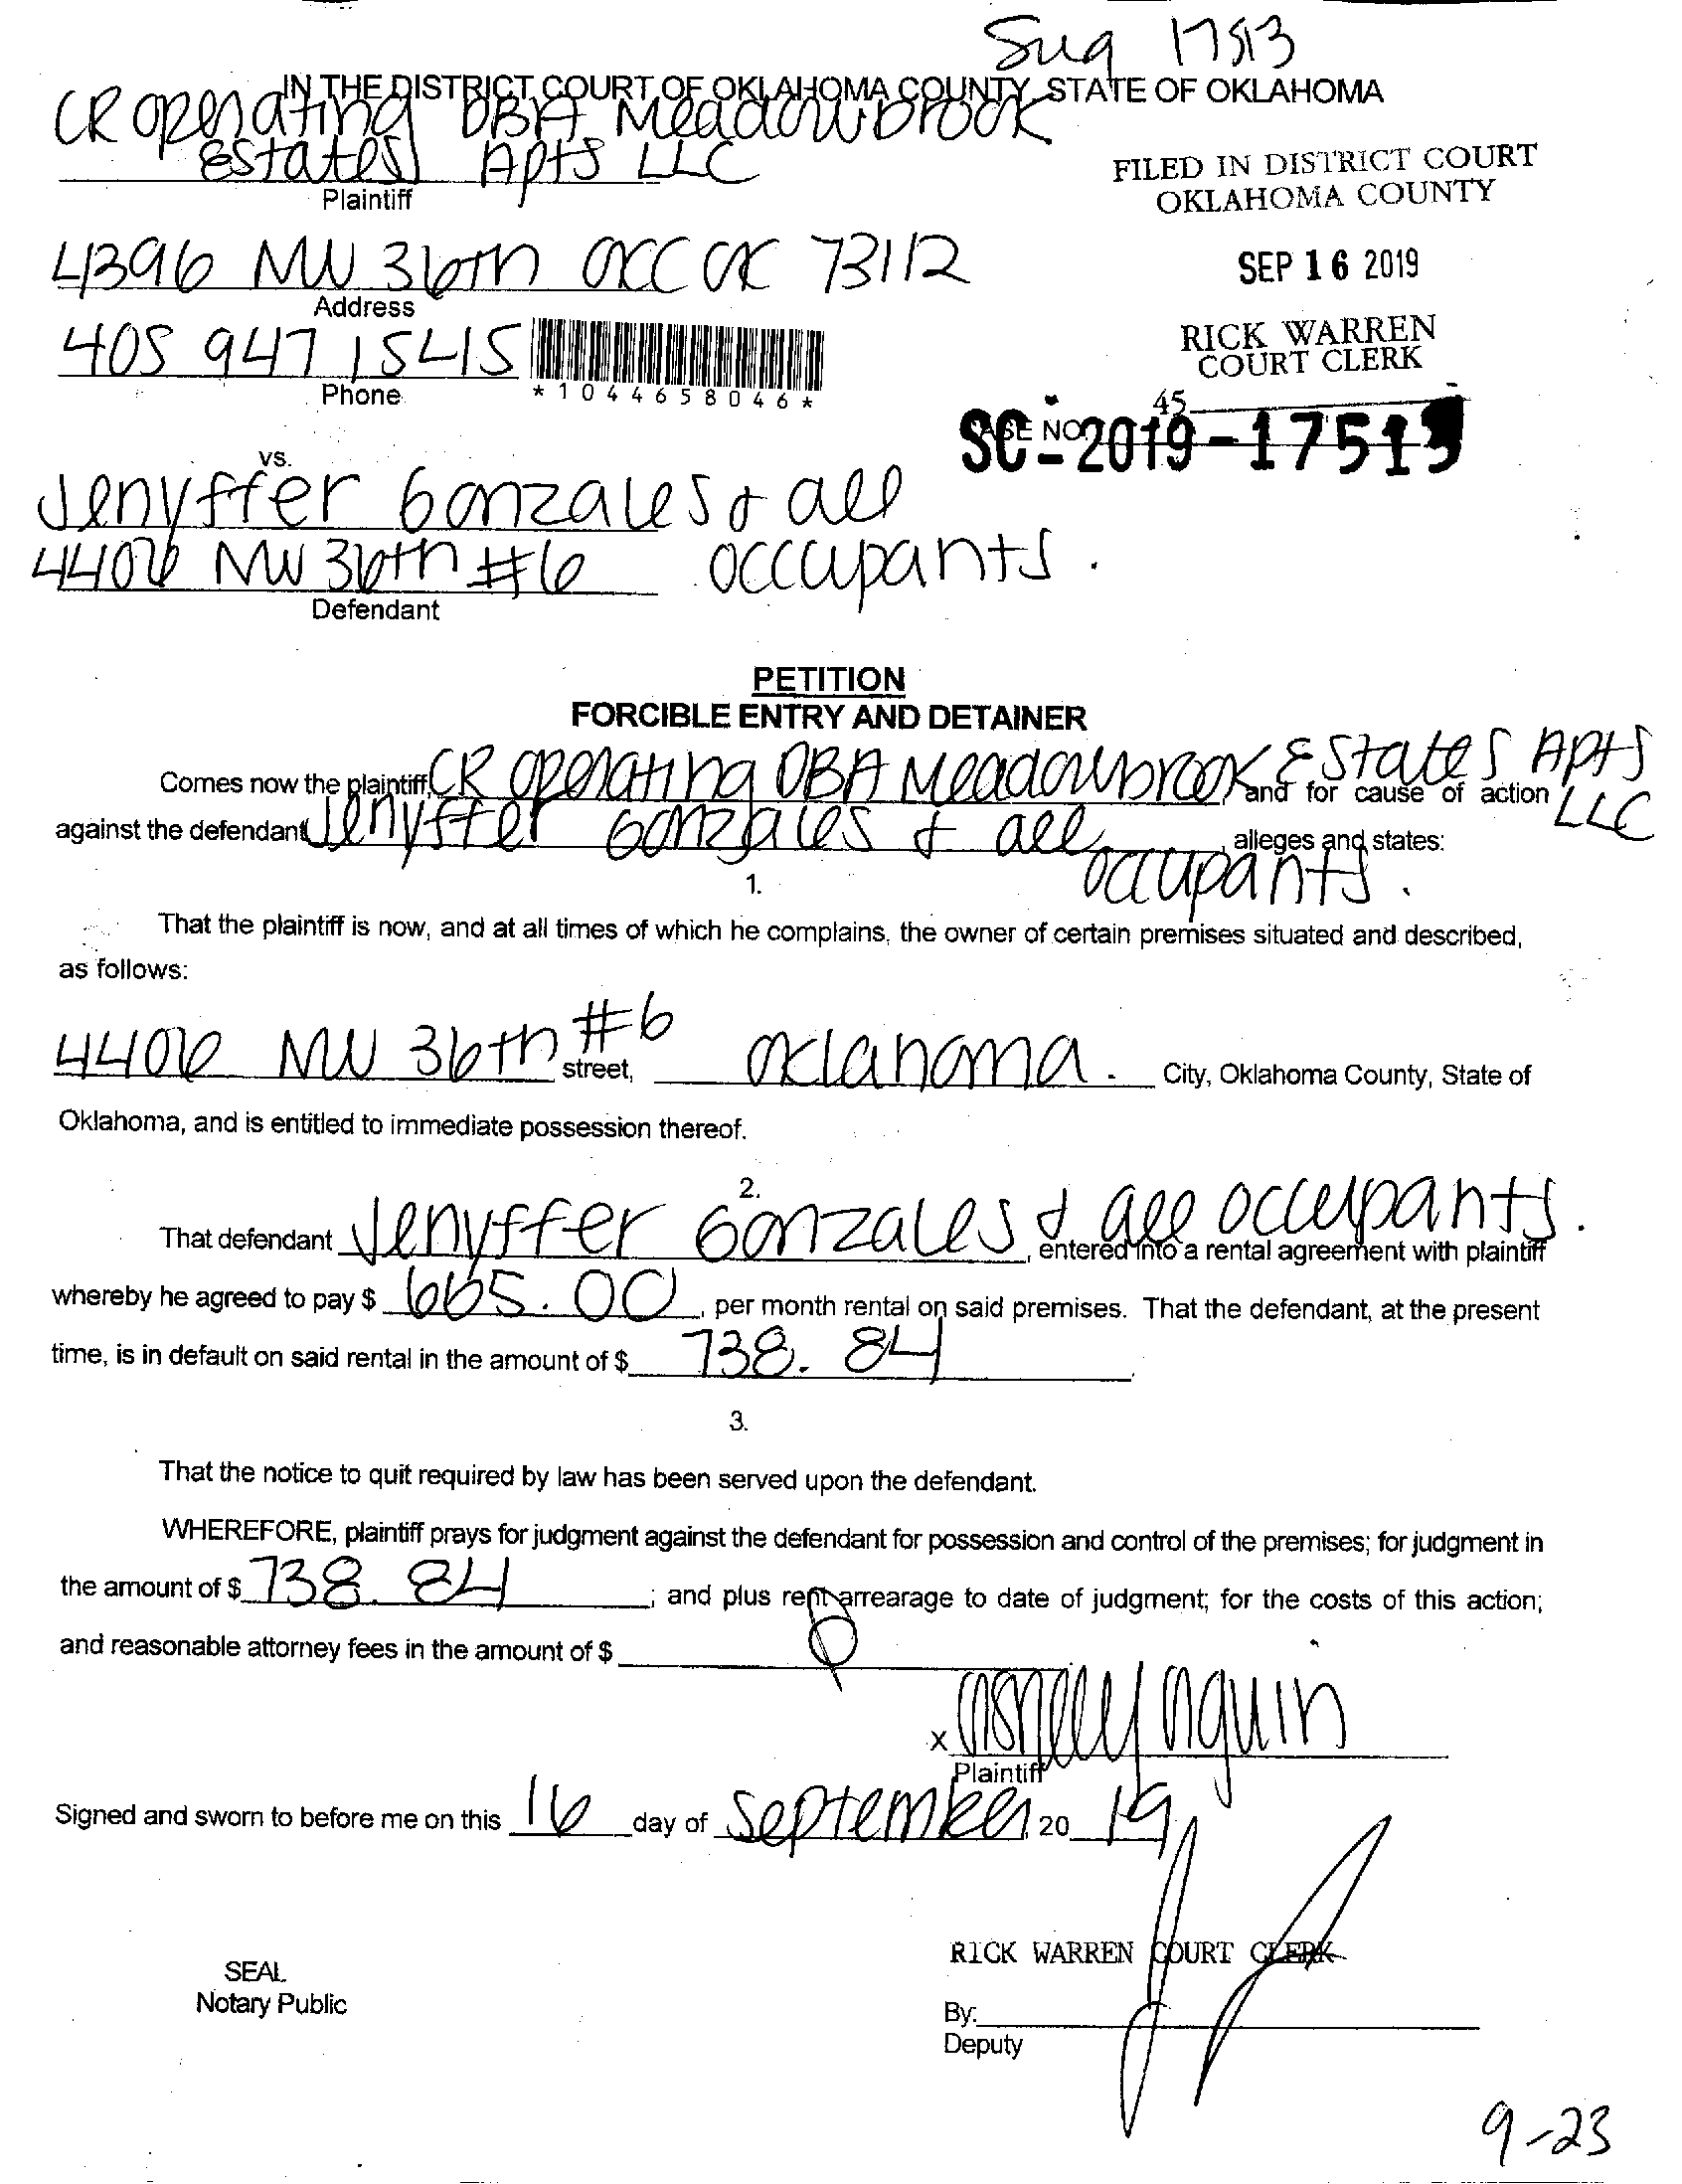 Sug 17513
IN THE DISTRICT COURT OF OKLAHOMA COUNTY, STATE OF OKLAHOMA
CR Operating DBA Meadowbrook
Estates Apts LLC
Plaintiff
FILED IN DISTRICT COURT
OKLAHOMA COUNTY
4396 NW 36th OKC OK 73112
Address
SEP 16 2019
405 947 1545
Phone
*1044658046*
RICK WARREN
COURT CLERK
45
CASE NO.
SC-2019-17513
vs.
Jenyffer Gonzales & all
4406 NW 36th #6 occupants.
Defendant
PETITION
FORCIBLE ENTRY AND DETAINER
Comes now the plaintiff, CR Operating DBA Meadowbrook Estates Apts LLC and for cause of action
against the defendant Jenyffer Gonzales & all occupants. , alleges and states:
1.
That the plaintiff is now, and at all times of which he complains, the owner of certain premises situated and described,
as follows:
4406 NW 36th #6 street, Oklahoma. City, Oklahoma County, State of
Oklahoma, and is entitled to immediate possession thereof.
2.
That defendant Jenyffer Gonzales & all occupants. , entered into a rental agreement with plaintiff
whereby he agreed to pay $ 665.00 , per month rental on said premises. That the defendant, at the present
time, is in default on said rental in the amount of $ 738.84 .
3.
That the notice to quit required by law has been served upon the defendant.
WHEREFORE, plaintiff prays for judgment against the defendant for possession and control of the premises; for judgment in
the amount of $ 738.84 ; and plus rent arrearage to date of judgment; for the costs of this action;
and reasonable attorney fees in the amount of $ 0
x
Plaintiff
Signed and sworn to before me on this 16 day of September, 20 19
RICK WARREN COURT CLERK
SEAL
Notary Public
By:
Deputy
9-23